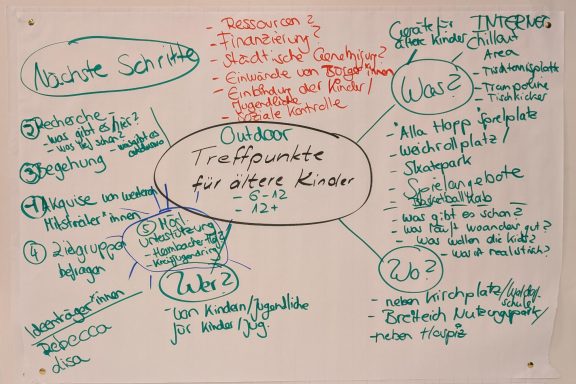 Nächste Schritte
② Recherche -
- was gibt es hier?
③ Begehung
① Akquise von weiteren
Mitstreiter*innen
④ Zielgruppen
befragen
Ideenträger*innen
Rebecca
Lisa
- Ressourcen?
- Finanzierung?
- Städtische Genehmigung?
- Einwände von Bürger*innen
- Einbindung der Kinder/
Jugendliche
- soziale Kontrolle
Outdoor
Treffpunkte
für ältere Kinder
- 6-12
- 12+
⑤ Mögl.
Unterstützung
- Kreisjugendring
Wer?
- von Kindern/Jugendliche
für Kinder/Jug.
Was?
Geräte für
ältere Kinder
INTERNET
Chillout
Area
- Tischtennisplatte
- Trampoline
- Tischkicker
- "Alla Hopp" Spielplatz
- Weichrollplatz/
Skatepark
- Spielangebote
- Basketballkorb
- was gibt es schon?
- was läuft woanders gut?
- was wollen die Kids?
- was ist realistisch?
Wo?
- neben Kirchplatz/Waldorf
schule
- Breiteich Nutzungspark/
- neben Hospiz